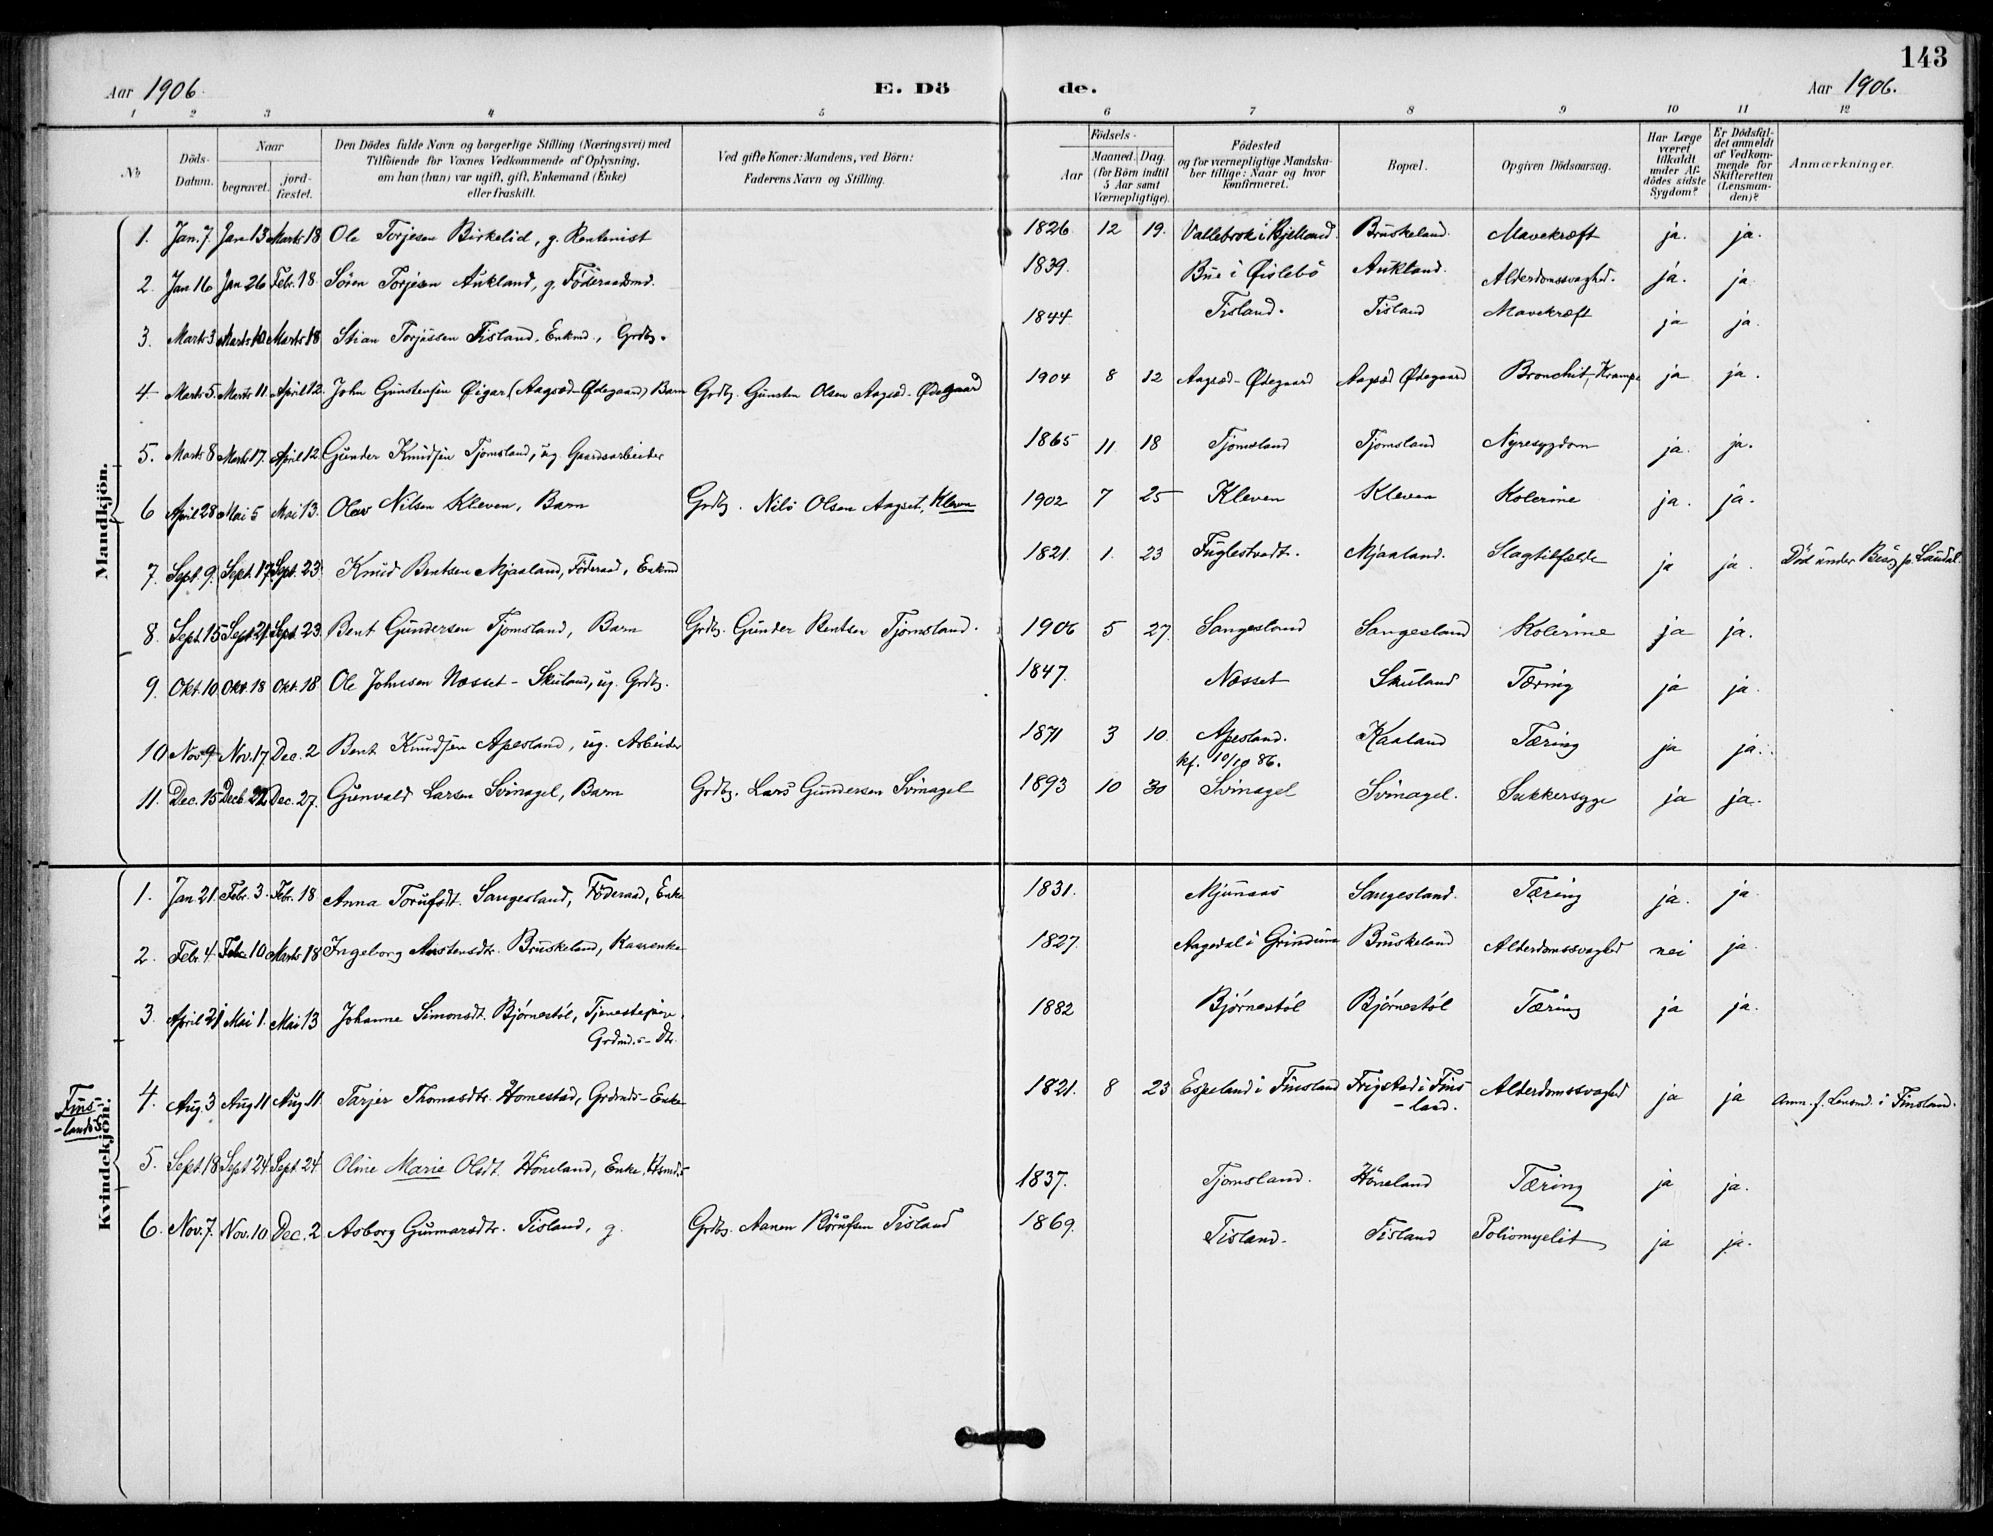 143
Aar 1906. E. Dö de. Aar 1906.
1 2 3 4 5 6 7 8 9 10 11 12
No
Döds-Datum.
Naar
begravet.
jord-fæstet.
Den Dödes fulde Navn og borgerlige Stilling (Næringsvei) med
Tilföiende for Voxnes Vedkommende af Oplysning,
om han (hun) var ugift, gift, Enkemand (Enke)
eller fraskilt.
Ved gifte Koner: Mandens, ved Börn:
Faderens Navn og Stilling.
Födsels-
Aar
Maaned. Dag.
(for Börn indtil
5 Aar samt
Værnepligtige).
Födested
og for værnepligtige Mandska-
ber tillige: Naar og hvor
konfirmeret.
Bopæl.
Opgiven Dödsaarsag.
Har Læge
været
tilkaldt
under Af-
dödes sidste
Sygdom?
Er Dödsfal-
det anmeldt
af Vedkom-
mende for
Skifteretten
(Lensman-
den)?
Anmærkninger.
Mandkjön.
1. Jan. 7 Jan 13 Marts 18 Ole Torjesen Birkelid, g. Rentenist 1826 12 19. Vallebrok i Bjelland. Bruskeland. Mavekræft ja. ja.
2. Jan 16 Jan 26 Febr. 18 Sören Torjesen Aukland, g. Föderaadsmd. 1839. Bue i Øislebö Aukland. Alderdomssvaghed. ja. ja
3. Marts 3 Marts 10 Marts 18 Stian Torjussen Tisland, Enkmd., Grdbr. 1844 Tisland. Tisland Mavekræft ja ja.
4 Marts 5. Marts 11. April 12. John Gunstensen Øigar (Aagsæd-Ødegaard) Barn Grdbr. Gunsten Olsen Aagsæd-Ødegaard 1904 8 12 Aagsæd-Ødegaard Aagsæd Ødegaard Bronchit, Krampe ja ja.
5. Marts 8 Marts 17. April 12 Gunder Knudsen Tjomsland, ug. Gaardsarbeider 1865 11 18 Tjomsland Tjomsland Nyresygdom ja. ja.
6 April 28 Mai 5 Mai 13. Olav Nilsen Kleven, Barn Grdbr. Nils Olsen Aagset, Kleven 1902 7 25 Kleven Kleven Kolerine ja. ja.
7. Sept. 9. Sept. 17. Sept. 23. Knud Bentsen Mjaaland, Föderaad, Enkmd 1821. 1. 23 Fuglestvedt. Mjaaland. Slagtilfælde ja ja. Död under Besög p. Laudal.
8. Sept. 15 Sept 21. Sept. 23. Bent Gundersen Tjomsland, Barn Grdbr. Gunder Bentsen Tjomsland. 1906 5 27. Sangesland Sangesland Kolerine ja ja.
9. Okt. 10 Okt. 18 Okt. 18 Ole Johnsen Nosset-Skuland, ug. Grdbr. 1847. Nosset Skuland Tæring ja ja.
10 Nov. 9 Nov. 17. Dec. 2 Bent Knudsen Apesland, ug. Arbeider 1871 3 10. Apesland. Kaaland Tæring ja ja.
kf. 10/10 86.
11. Dec. 15 Decb. 22 Dec. 27. Gunvald Larsen Svinagel, Barn Grdbr. Lars Gundersen Svinagel 1893 10 30 Svinagel Svinagel. Sukkersyge ja ja.
Kvindekjön.
1. Jan. 21. Febr. 3. Febr. 18 Anna Torufsdt. Sangesland, Föderaad, Enke 1831. Mjunaas Sangesland. Tæring ja. ja.
2. Febr. 4. Febr. 10 Marts 18 Ingeborg Austensdtr. Bruskeland, Kaarenke 1827. Aagedal i Grindum Bruskeland Alderdomssvaghed nei ja.
3. April 21 Mai 1. Mai 13 Johanne Simonsdt. Björnestöl, Tjenestepige, 1882 Björnestöl Björnestöl Tæring ja ja.
Grdmd.s-Dtr.
Fins-
-lands S.
4. Aug. 3 Aug 11 Aug. 11 Tarjer Thomasdtr. Homestad, Grdmds-Enke 1821. 8 23 Espeland i Finsland Frigstad i Fins-
-land. Alderdomssvaghed ja ja Anm. f. Lensmd. i Finsland.
5. Sept. 18 Sept 24 Sept. 24 Oline Marie Olsdt. Höneland, Enke, Husmd.s 1837. Tjomsland. Höneland Tæring ja ja.
6. Nov. 7. Nov. 10 Dec. 2. Asborg Gunnarsdtr. Tisland, g. Grdbr. Aanen Börufsen Tisland 1869. Tisland. Tisland Poliomyelit ja ja.